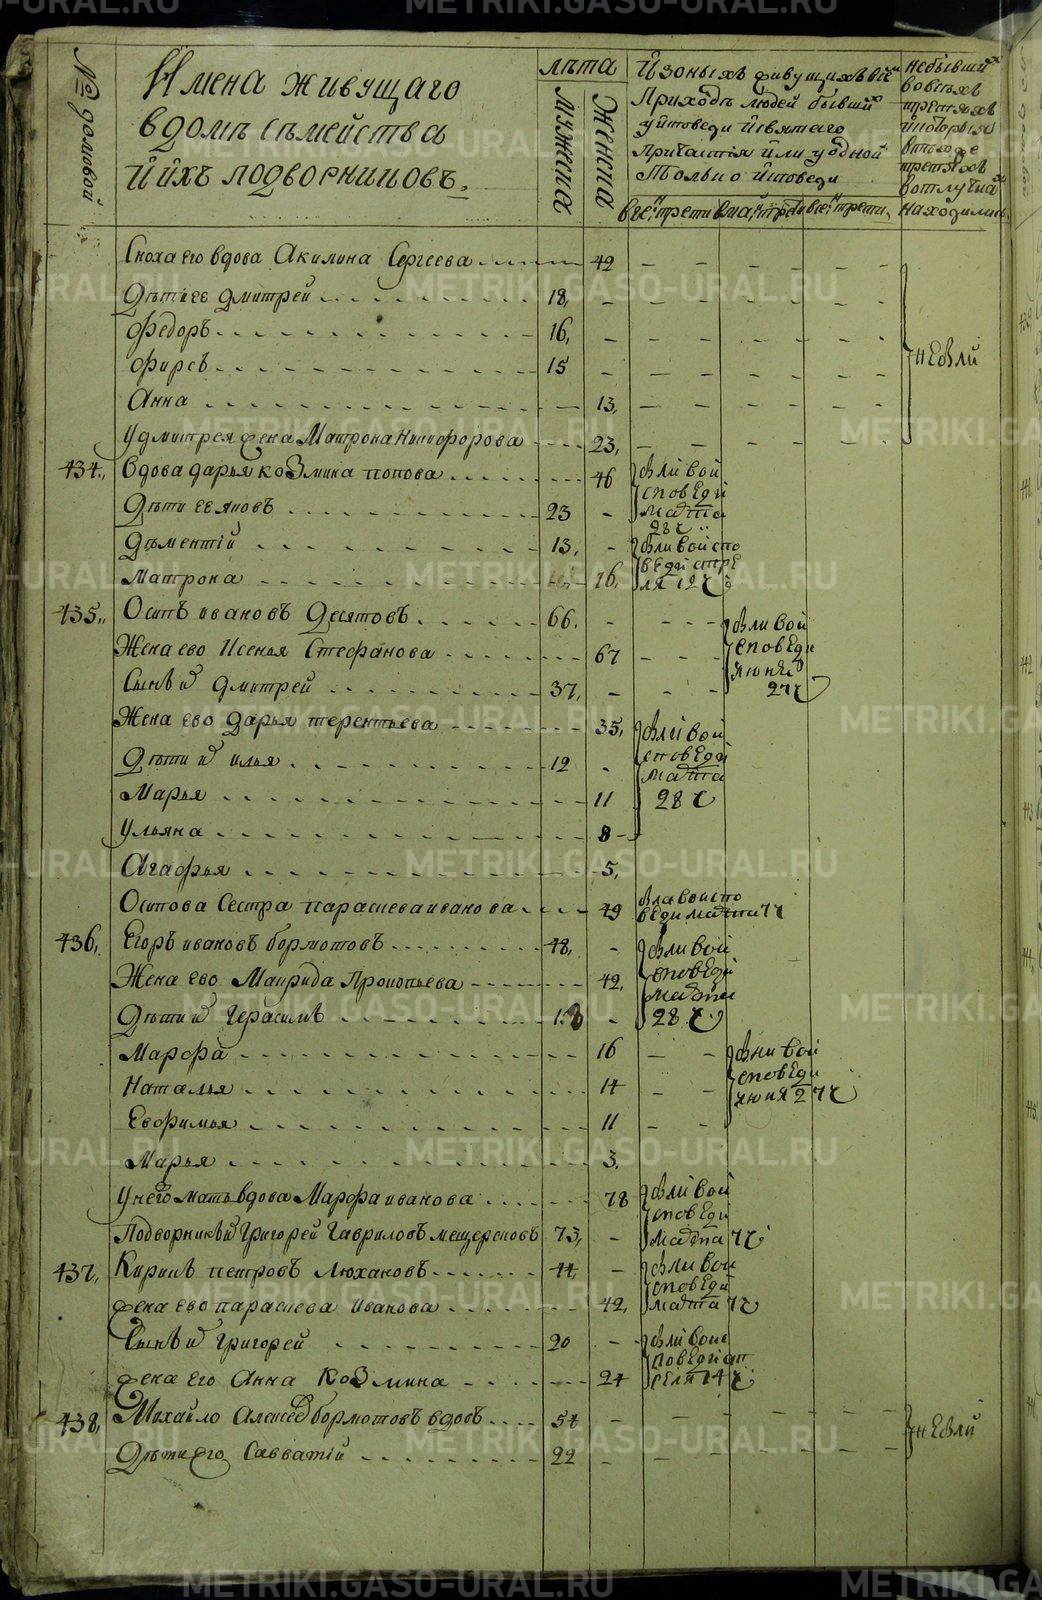 № домовой
Имена живущаго
в домѣ семейства
и ихъ подворниковъ.
лѣта
мужеска
Женска
Изоныхъ живущихъ в
Приходѣ людей бывши
у исповеди и святаго
причастия или у одной
Только исповеди
небывши
во всехъ
третяхъ
и которыя
третяхъ
в отлучках
находились
Сноха его вдова Акилина Сергеева 42
Дѣти ее Дмитрей 18,
Федоръ 16,
Фирсъ 15
небыли
Анна 13,
У дмитрея жена Матрона Никифорова 23,
434., вдова дарья козмина попова 46
были вой
споведи
марта
28 ч
Дѣти ее яковъ 23
Дѣментiй 13,
были вой спо
веди апре
ля 12 ч
Матрона 16,
435., Осипъ ивановъ Десятовъ 66.
были вой
споведи
июня
27 ч
Жена ево Ксенья Стефанова 67
Сынъ и Дмитрей 37,
Жена ево Дарья терентьева 35,
были вой
споведи
марта
28 ч
Дѣти и илья 12
Марья 11
Ульяна 8
Агафья 5,
Осипова Сестра параскева иванова 49
была вой спо
веди марта 7 ч
436, Егоръ ивановъ бормотовъ 48,
были вой
споведи
марта
28 ч
Жена ево Маврида Прокопьева 42,
Дѣти и Герасимъ 18
Марфа 16
были вой
споведи
июня 27 ч
Наталья 14
Евфимья 11
Марья 3,
У него мать вдова Марфа иванова 78
были вой
споведи
марта 7 ч
Подворникъ Григорей Гавриловъ мещеряковъ 73,
437, Кирилъ петровъ Люхановъ 44,
были вой
споведи
марта 7 ч
жена ево параскева иванова 42,
Сынъ и григорей 20
были вои
споведи ап
реля 14 ч
жена его Анна козмина 24
438, Михайло Алексеев бормотовъ вдовъ 54
небыли
Дѣти его Савватiй 22
METRIKI.GASO-URAL.RU